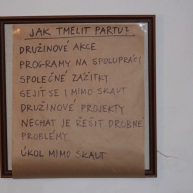 JAK TMELIT PARTU?
DRUŽINOVÉ AKCE
PROGRAMY NA SPOLUPRÁCI
SPOLEČNÉ ZÁŽITKY
SEJÍT SE I MIMO SKAUT
DRUŽINOVÉ PROJEKTY
NECHAT JE ŘEŠIT DROBNÉ
PROBLÉMY
ÚKOL MIMO SKAUT